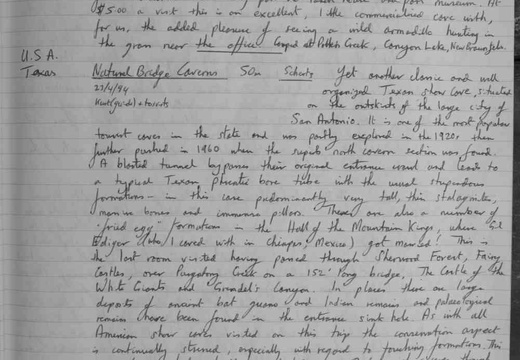 $5.00 a visit this is an excellent, 1 the commercialised cave with,
for us, the added pleasure of seeing a wild armadillo hunting in
the grass near the office. Camped at Potters Creek, Canyon Lake, New Braunfels.
U.S.A.
Texas
Natural Bridge Caverns 50m Yet another classic and well
27/4/84 organized Texan show cave, situated
Kent (guide) + tourists on the outskirts of the large city of
San Antonio. It is one of the most popular
tourist caves in the state and was partly explored in the 1920s then
further pushed in 1960 when the superb north cavern section was found.
A blasted tunnel bypasses their original entrance and leads to
a typical Texan phreatic bore tube with the usual stupendous
formations - in this case predominantly very tall, thin stalagmites,
massive bosses and immense pillars. There are also a number of
"fried egg" formations in the Hall of the Mountain Kings, where Gil
Ediger (who I caved with in Chiapas, Mexico) got married! This is
the last room visited having passed through Sherwood Forest, Fairy
Castles, over Purgatory Creek on a 152' long bridge, The Castle of the
White Giants and Grendel's Canyon. In places there are large
deposits of ancient bat guano and Indian remains and palaeological
remains have been found in the entrance sink hole. As with all
American show caves visited on this trip the conservation aspect
is continually stressed, especially with regard to touching formations. This